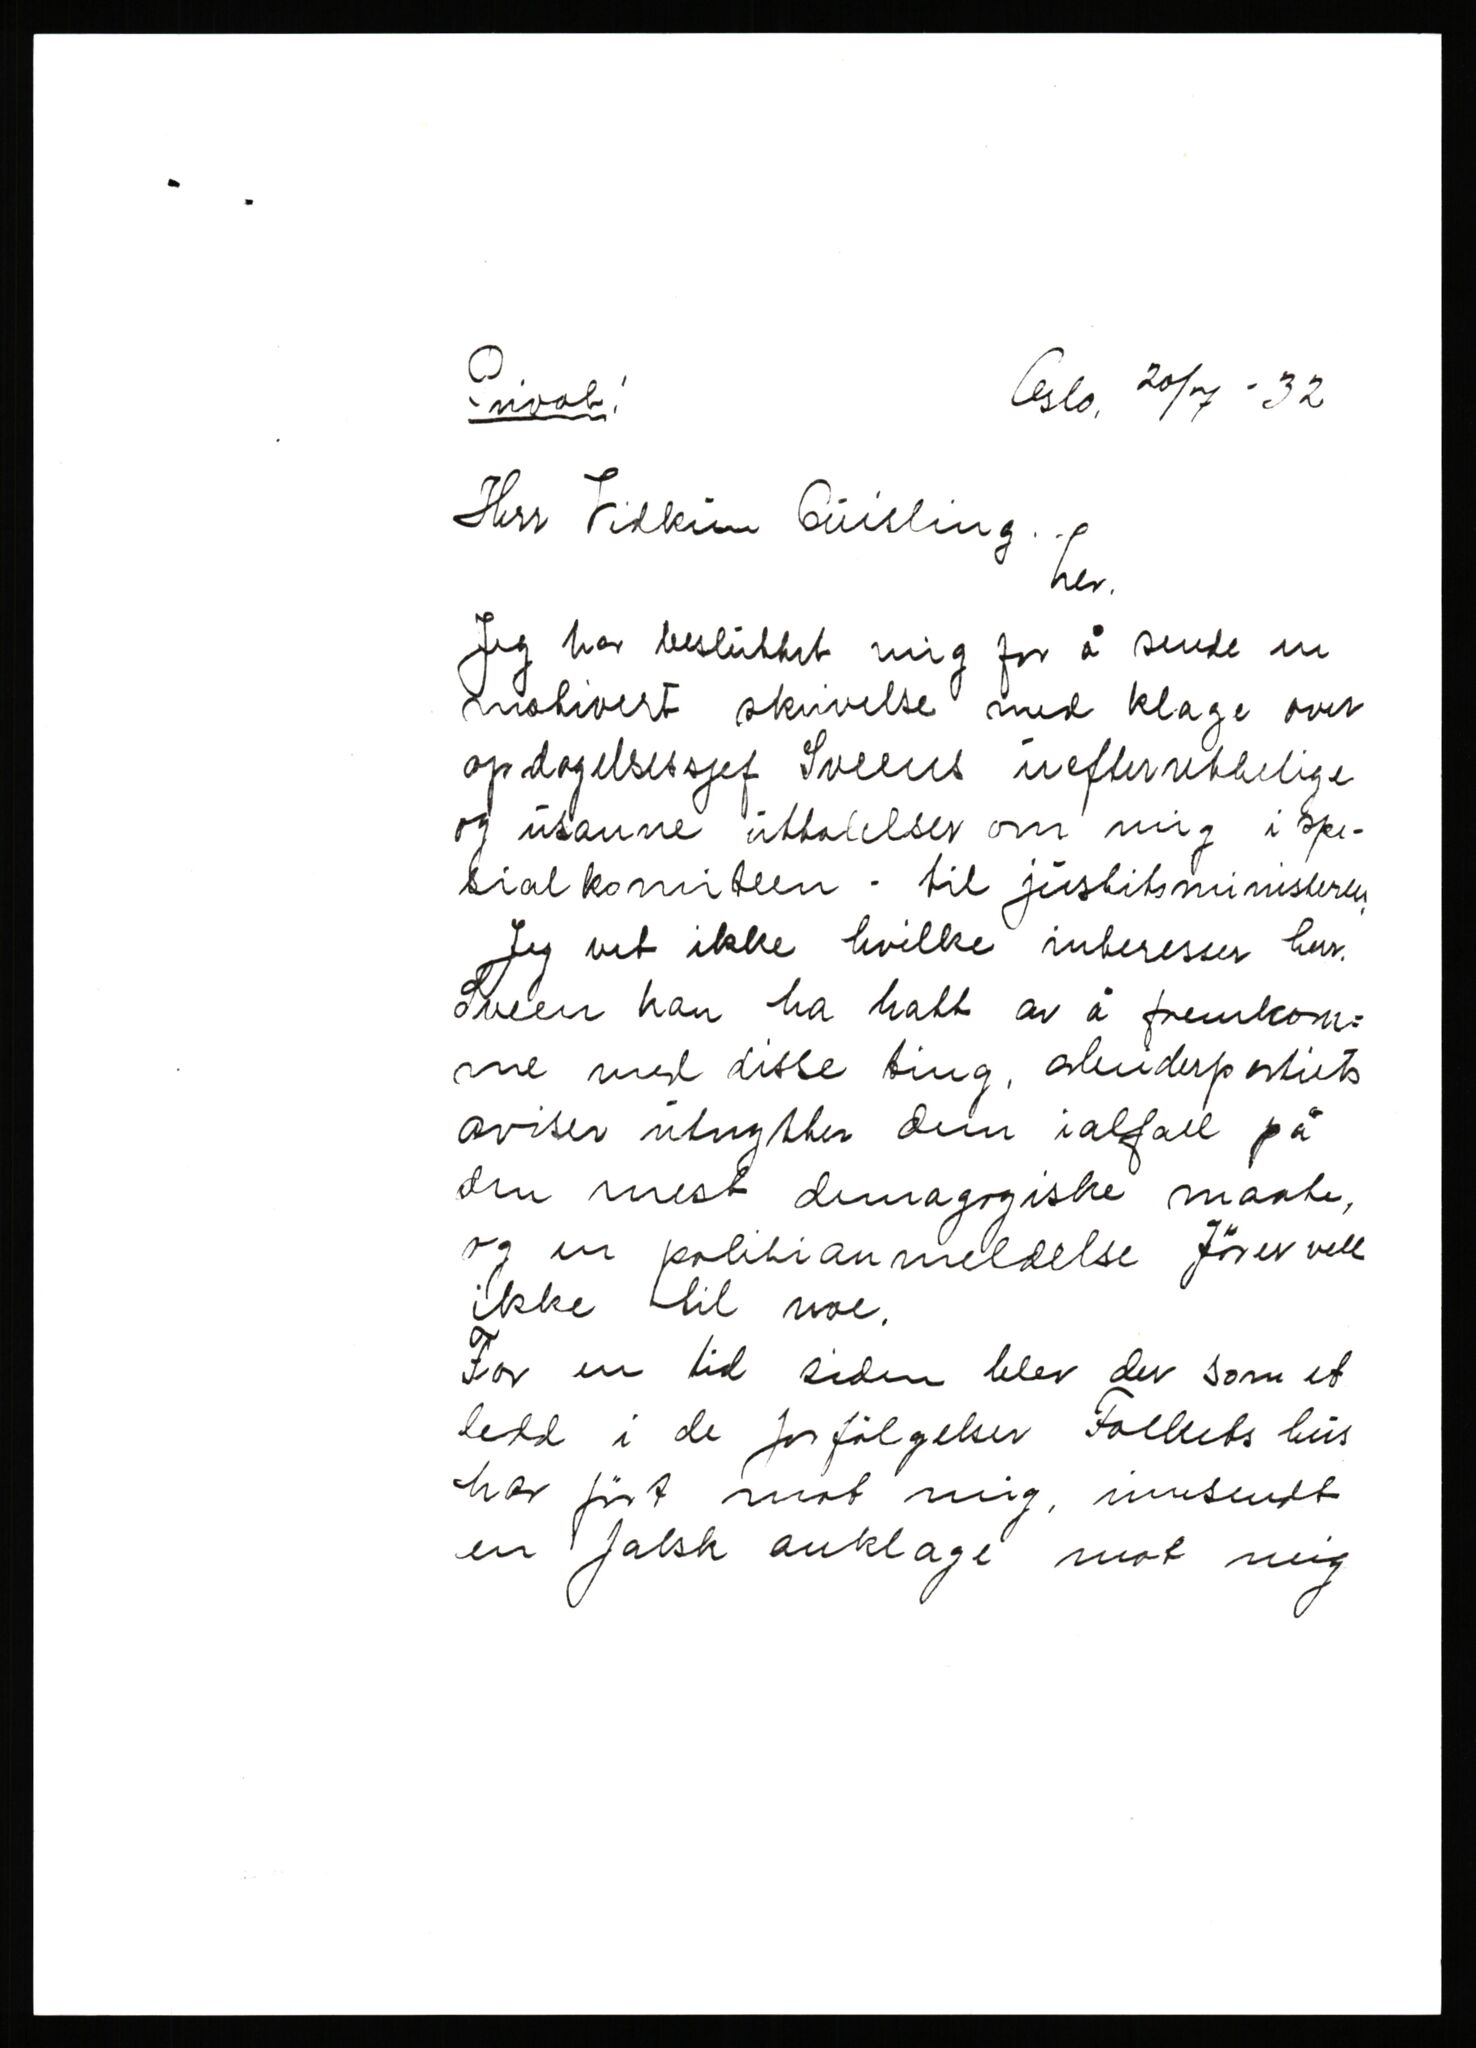 Privat!
Oslo, 20/7 - 32
Herr Vidkun Quisling.
her.
Jeg har besluttet mig for å sende en
motivert skrivelse med klage over
opdagelsessjef Sveens uefterrettelige
og usanne uttalelser om mig i spe-
sialkomiteen - til justitsministeren.
Jeg vet ikke hvilke interesser herr
Sveen kan ha hatt av å fremkom=
me med disse ting, arbeiderpartiets
aviser utnytter dem ialfall på
den mest demagogiske maate,
og en politianmeldelse förer vell
ikke til noe.
For en tid siden blev der som et
ledd i de forfölgelser Folkets hus
har fört mot mig, innsendt
en falsk anklage mot mig